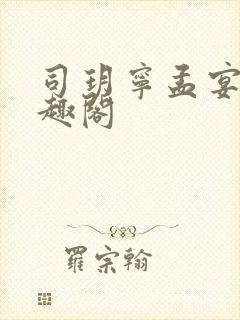 司玥寧孟宴
趣閣
羅宗翰